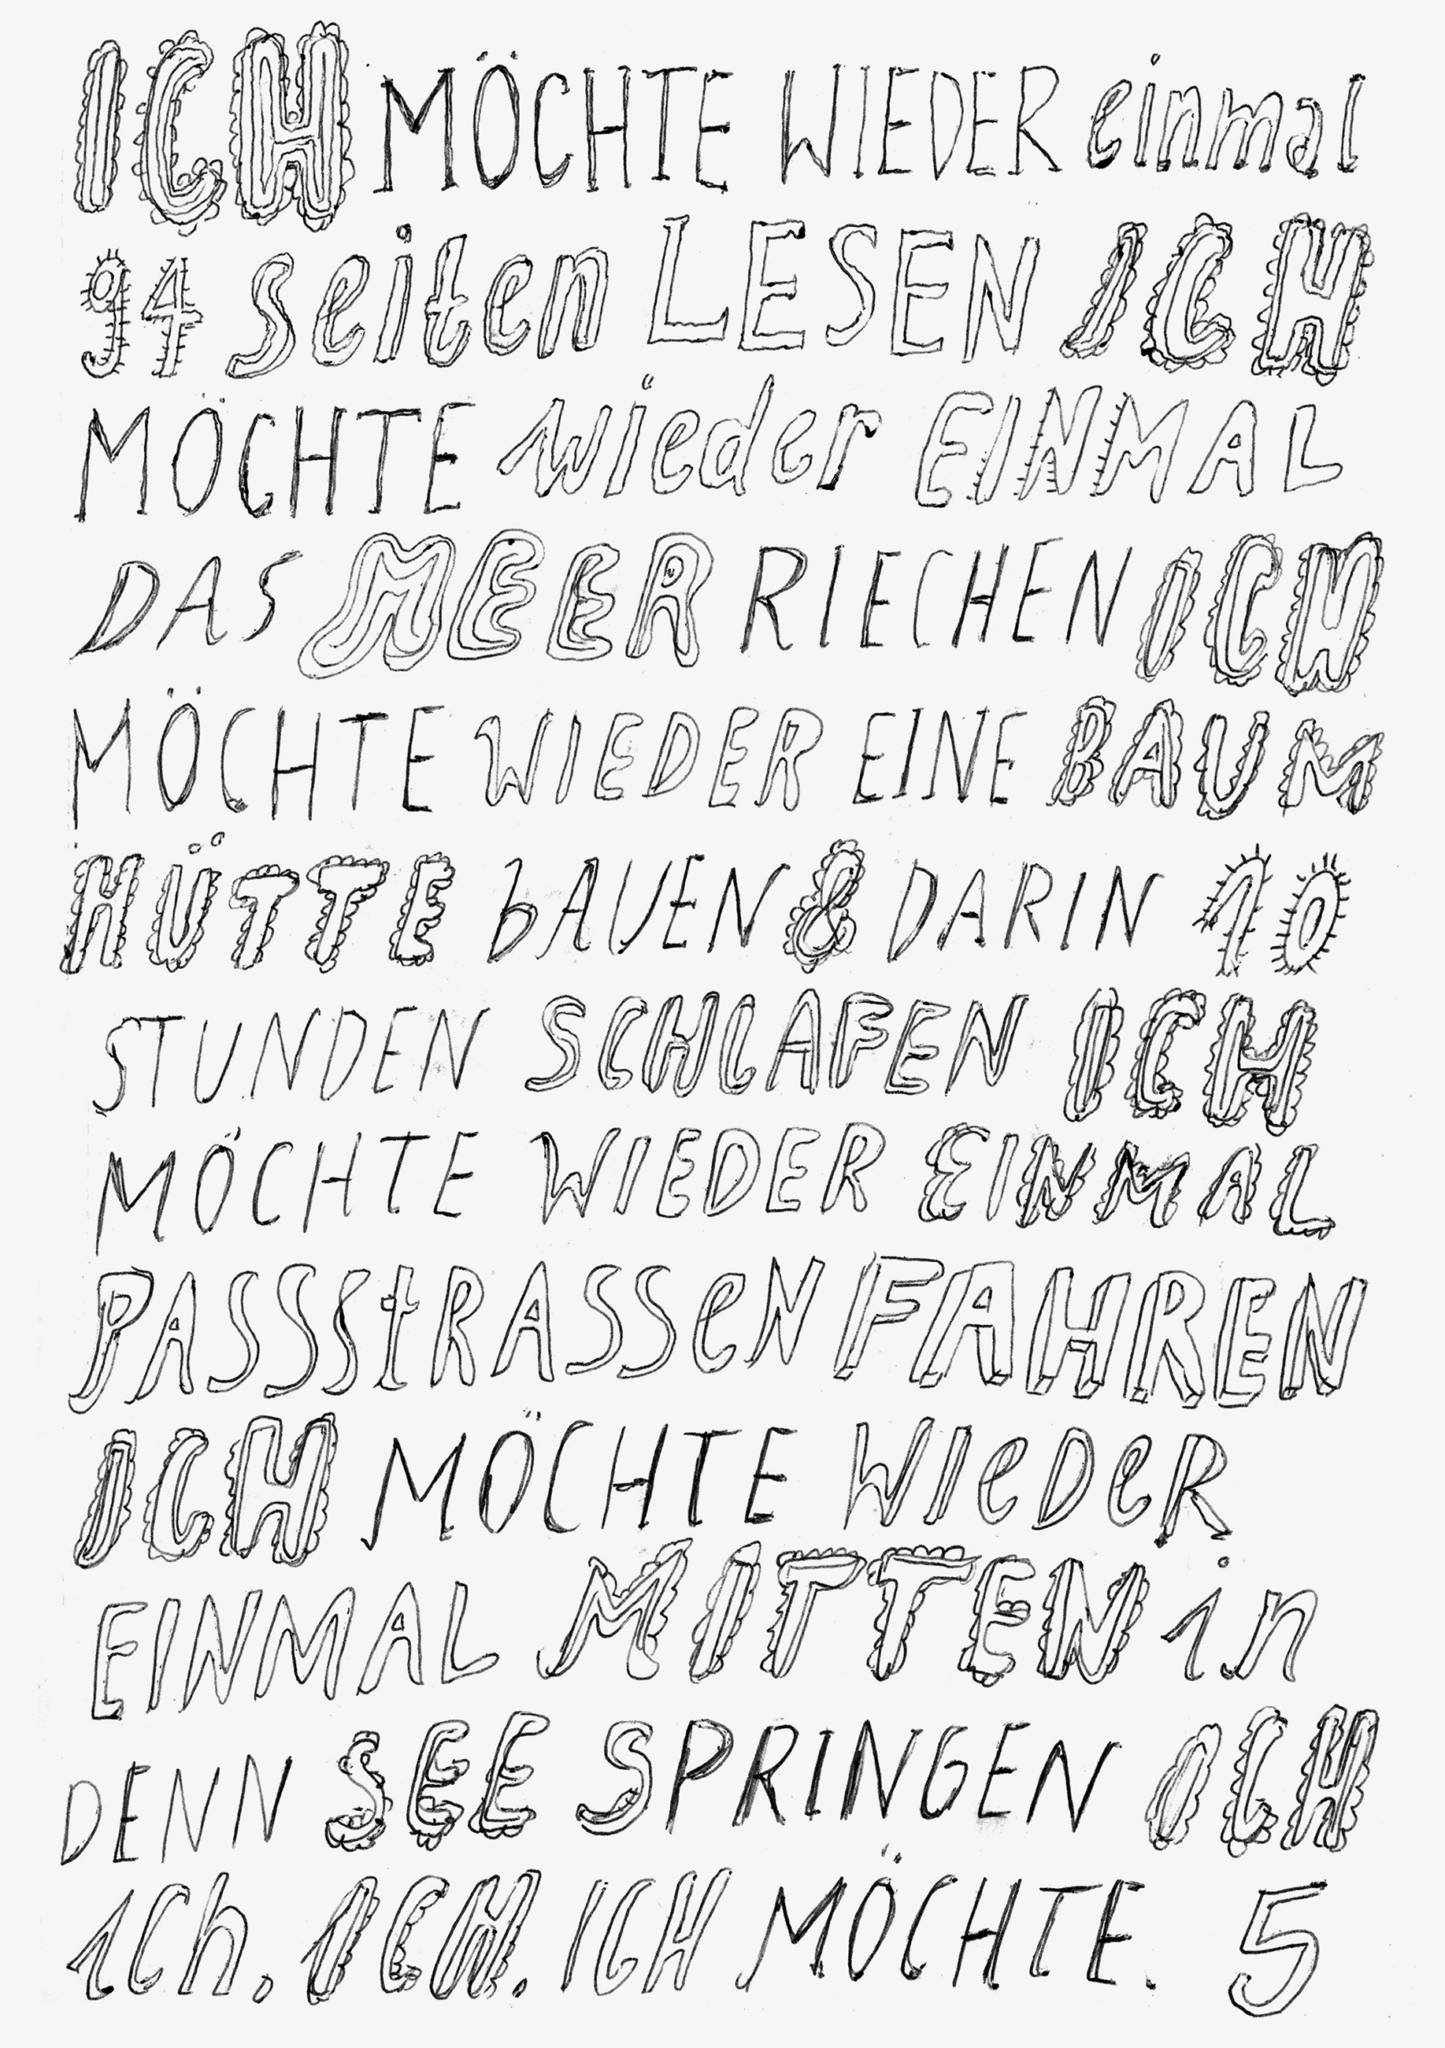 ICH MÖCHTE WIEDER einmal
94 seiten LESEN ICH
MÖCHTE wieder EINMAL
DAS MEER RIECHEN ICH
MÖCHTE WIEDER EINE BAUM
HÜTTE bAUEN & DARIN 10
STUNDEN SCHLAFEN ICH
MÖCHTE WIEDER EINMAL
PASSStRASSeN FAHREN
ICH MÖCHTE WIeDeR
EINMAL MITTEN in
DENN SEE SPRINGEN ICH
ICh. ICH. ICH MÖCHTE. 5